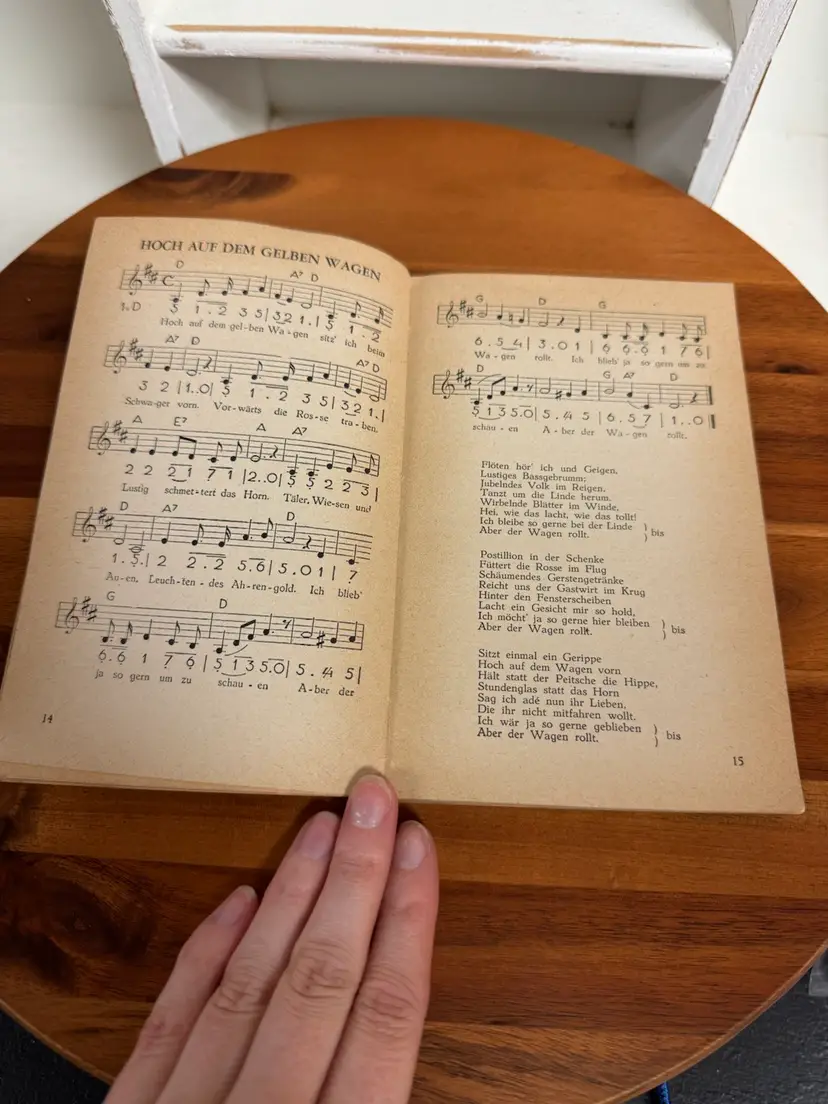 HOCH AUF DEM GELBEN WAGEN
D A7 D
1.D 5 1 . 2 3 5 | 3 2 1 . | 5 1 . 2
Hoch auf dem gel-ben Wa-gen sitz' ich beim
A7 D A7 D
3 2 | 1..0 | 5 1 . 2 3 5 | 3 2 1. |
Schwa-ger vorn. Vor-wärts die Ros-se tra-ben.
A E7 A A7
2 2 2 1 7 1 | 2..0 | 5 5 2 2 3 |
Lustig schmet-tert das Horn. Täler, Wie-sen und
D A7 D
1 . 5. | 2 2 . 2 5 . 6 | 5 . 0 1 | 7
Au-en, Leuch-ten-des Ah-ren-gold. Ich blieb'
G D
6 . 6 1 7 6 | 5 1 3 5.0 | 5 . 4 5 |
ja so gern um zu schau-en A-ber der
14
G D G
6 . 5 4 | 3 . 0 1 | 6 6 . 6 1 7 6 |
Wa-gen rollt. Ich blieb' ja so gern um zu
D G A7 D
5 1 3 5.0 | 5 . 4 5 | 6 . 5 7 | 1..0 ||
schau-en A-ber der Wa-gen rollt.
Flöten hör' ich und Geigen,
Lustiges Bassgebrumm;
Jubelndes Volk im Reigen,
Tanzt um die Linde herum.
Wirbelnde Blätter im Winde,
Hei, wie das lacht, wie das tollt!
Ich bleibe so gerne bei der Linde
Aber der Wagen rollt. } bis
Postillion in der Schenke
Füttert die Rosse im Flug
Schäumendes Gerstengetränke
Reicht uns der Gastwirt im Krug
Hinter den Fensterscheiben
Lacht ein Gesicht mir so hold,
Ich möcht' ja so gerne hier bleiben
Aber der Wagen rollt. } bis
Sitzt einmal ein Gerippe
Hoch auf dem Wagen vorn
Hält statt der Peitsche die Hippe,
Stundenglas statt das Horn
Sag ich adé nun ihr Lieben,
Die ihr nicht mitfahren wollt.
Ich wär ja so gerne geblieben
Aber der Wagen rollt. } bis
15